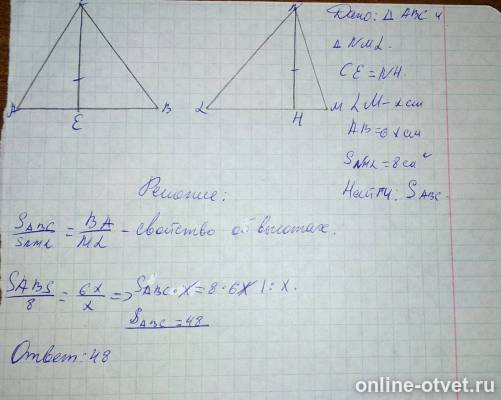 Дано: Δ ABC и
Δ NML.
CE = NH.
LM - x см
AB = 6x см
SNML = 8 см²
Найти: SABC.
A E B
N
L H M
Решение:
SABC / SNML = BA / ML - свойство о высотах.
SABS / 8 = 6x / x => SABC · x = 8 · 6x | : x.
SABC = 48
Ответ: 48
online-otvet.ru